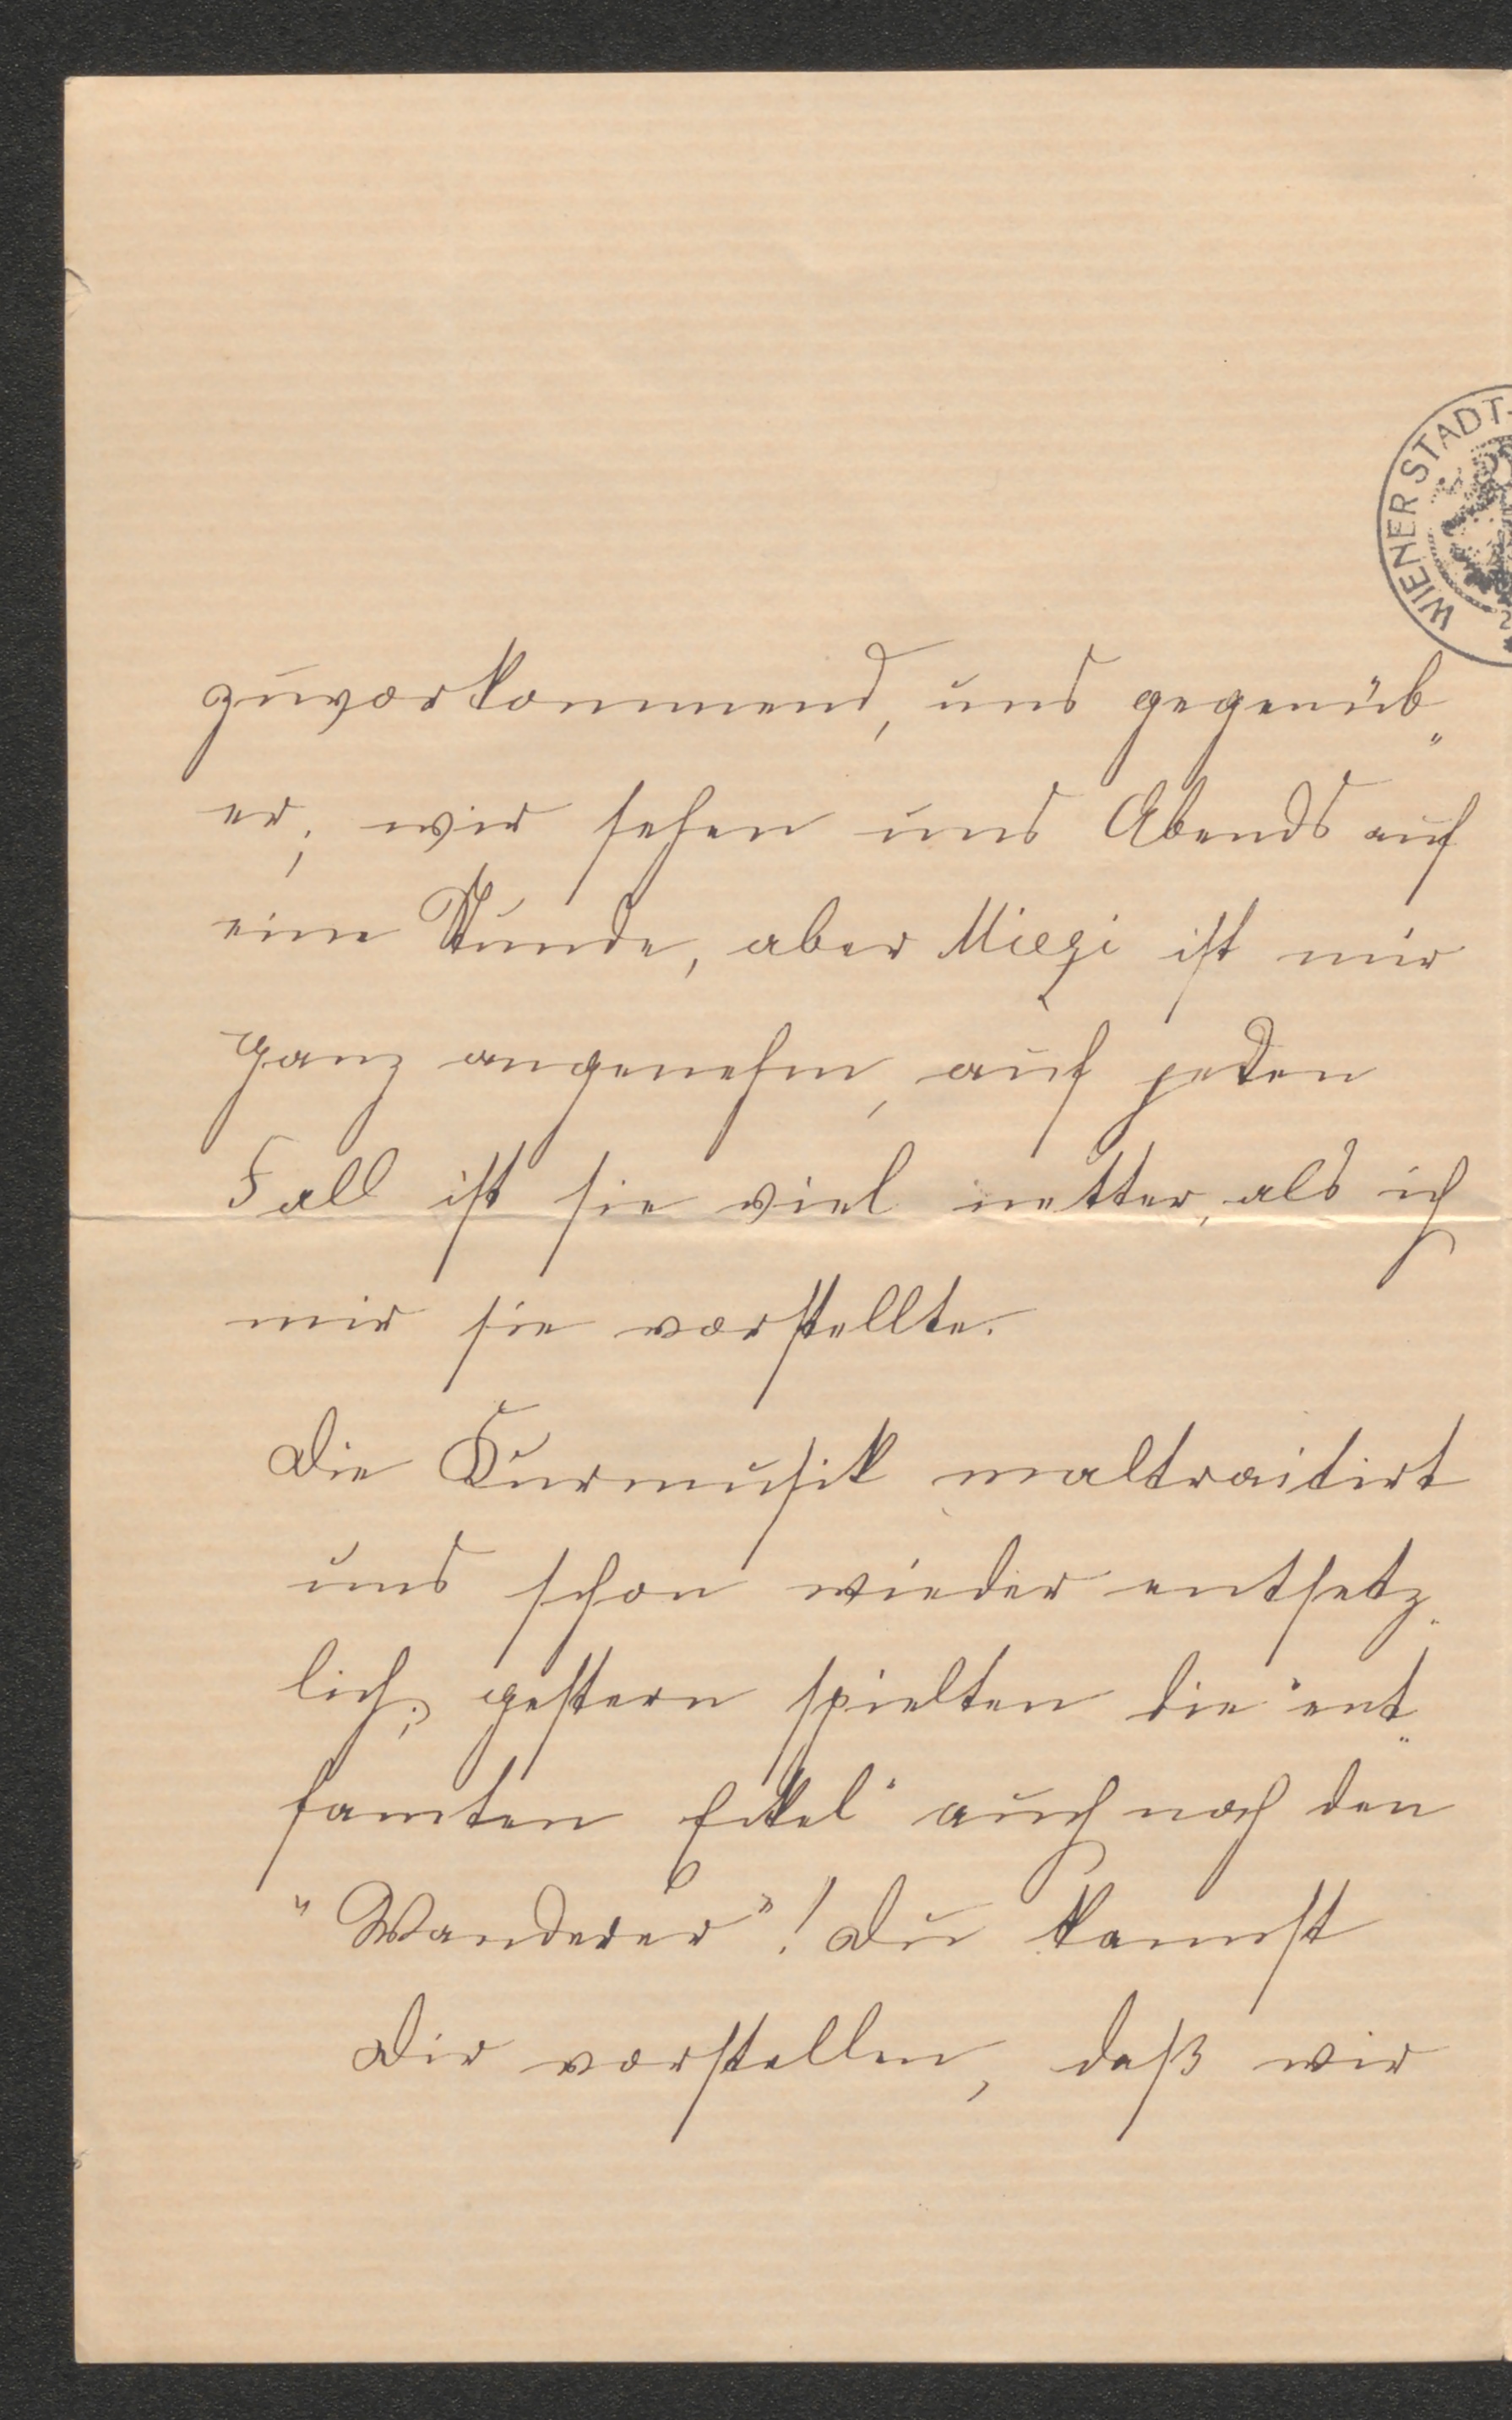 WIENER STADT-
zuvorkommend, uns gegenüb„
er; wir sehen uns Abends auf
eine Stunde, aber Miezi ist mir
ganz angenehm, auf jeden
Fall ist sie viel netter, als ich
mir sie vorstellte.
Die Kurmusik maltraitirt
uns schon wieder entsetz„
lich; gestern spielten die "ent„
famten Eckel" auch noch den
"Wanderer"! Du kannst
Dir vorstellen, daß wir